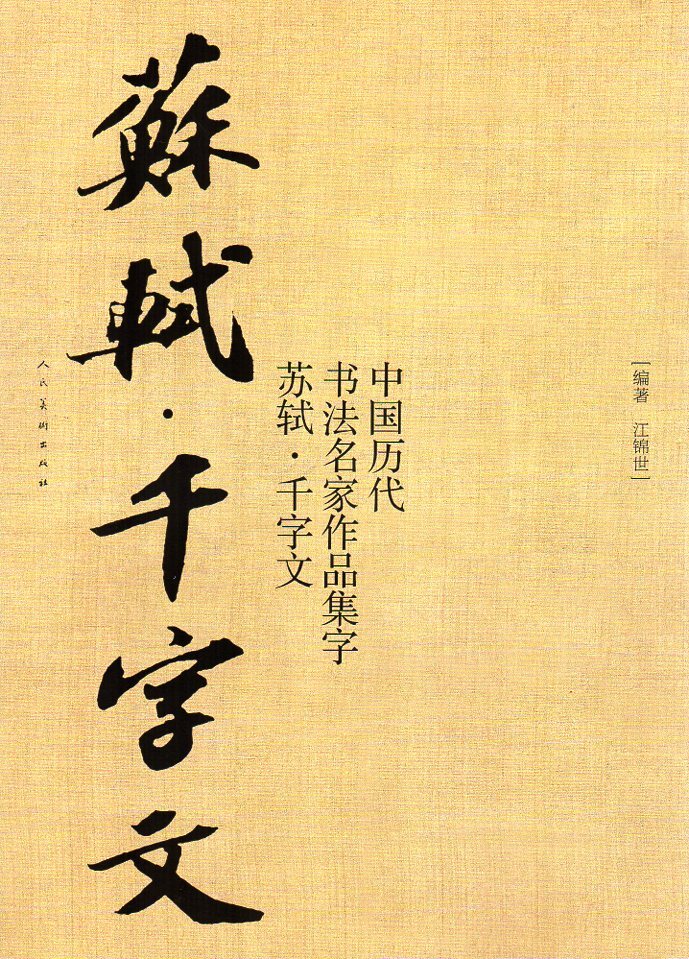 [编著 江锦世]
中国历代
书法名家作品集字
苏轼·千字文
蘇軾·千字文
人民美術出版社